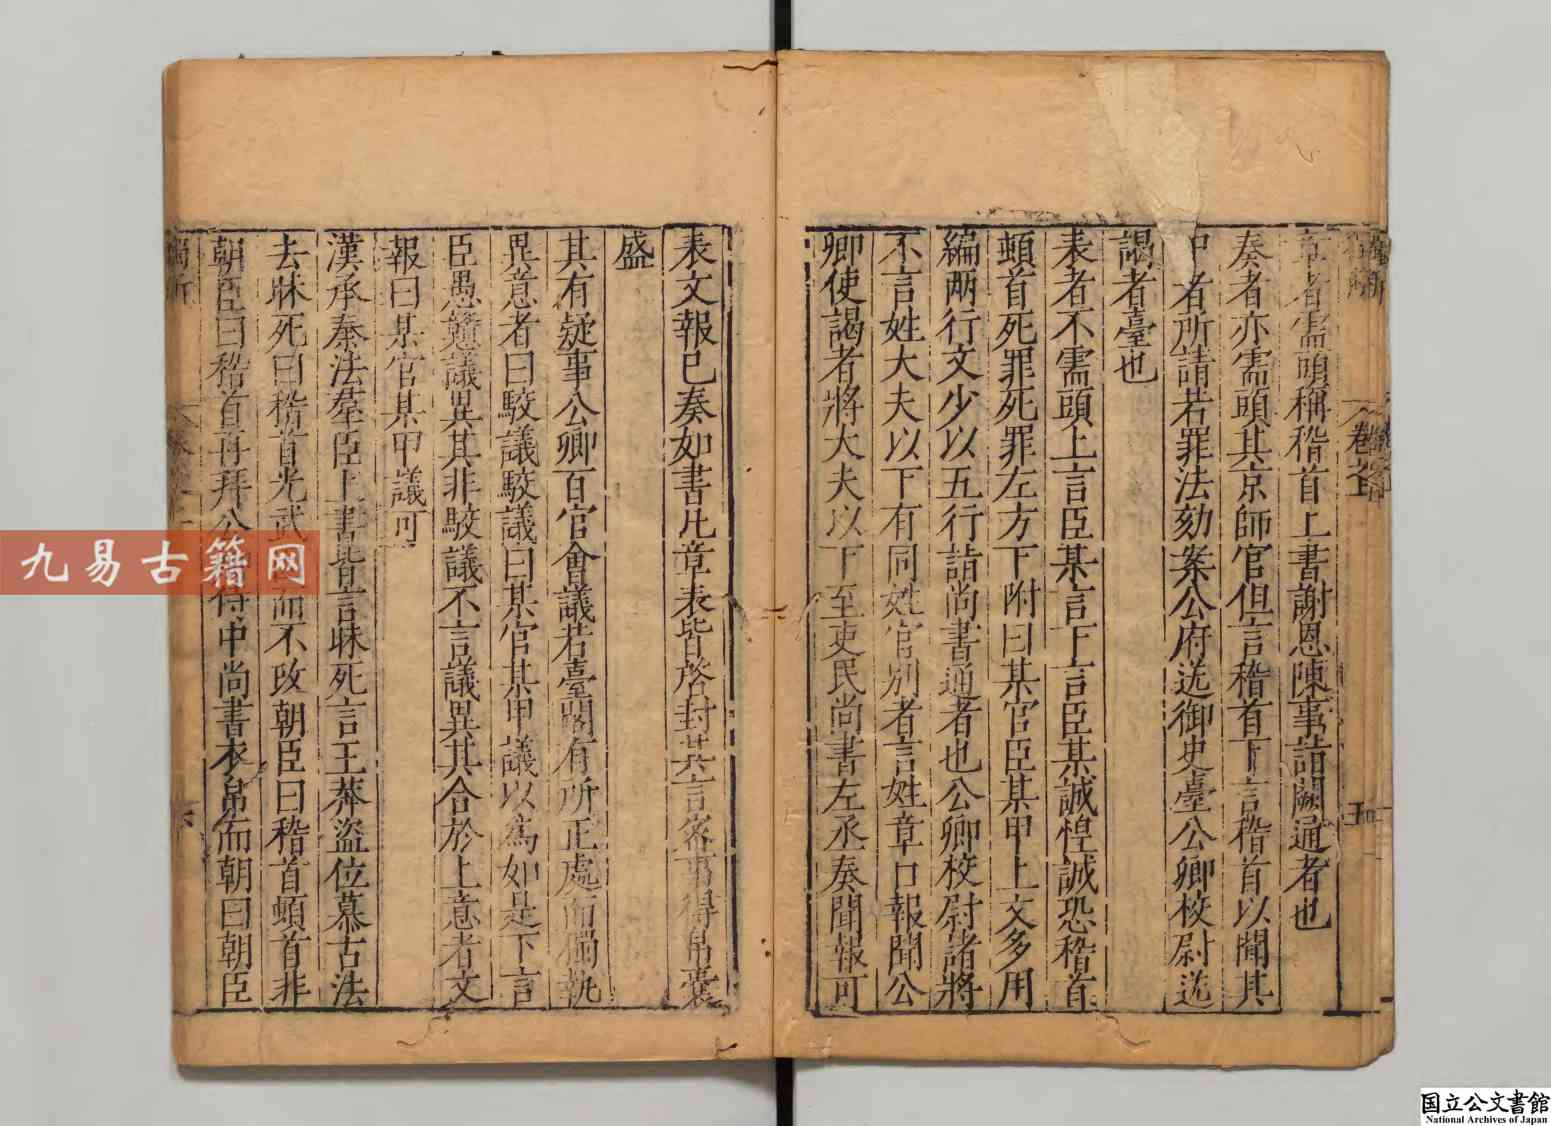 章者需頭稱稽首上書謝恩陳事詣闕通者也
奏者亦需頭其京師官但言稽首下言稽首以聞其
中者所請若罪法劾案公府送御史臺公卿校尉送
謁者臺也
表者不需頭上言臣某言下言臣某誠惶誠恐稽首
頓首死罪死罪左方下附曰某官臣某甲上文多用
編兩行文少以五行詣尚書通者也公卿校尉諸將
不言姓大夫以下有同姓官別者言姓章口報聞公
卿使謁者將大夫以下至吏民尚書左丞奏聞報可
表文報已奏如書凡章表皆啓封其言密事得帛囊
盛
其有疑事公卿百官會議若臺閣有所正處而獨執
異意者曰駮議駮議曰某官某甲議以爲如是下言
臣愚戇議異其非駮議不言議異其合於上意者文
報曰某官某甲議可
漢承秦法羣臣上書皆言昧死言王莽盜位慕古法
去昧死曰稽首光武而不改朝臣曰稽首頓首非
朝臣曰稽首再拜公侍中尚書衣帛而朝曰朝臣
獨斷
卷之
五
九易古籍网
国立公文書館
National Archives of Japan